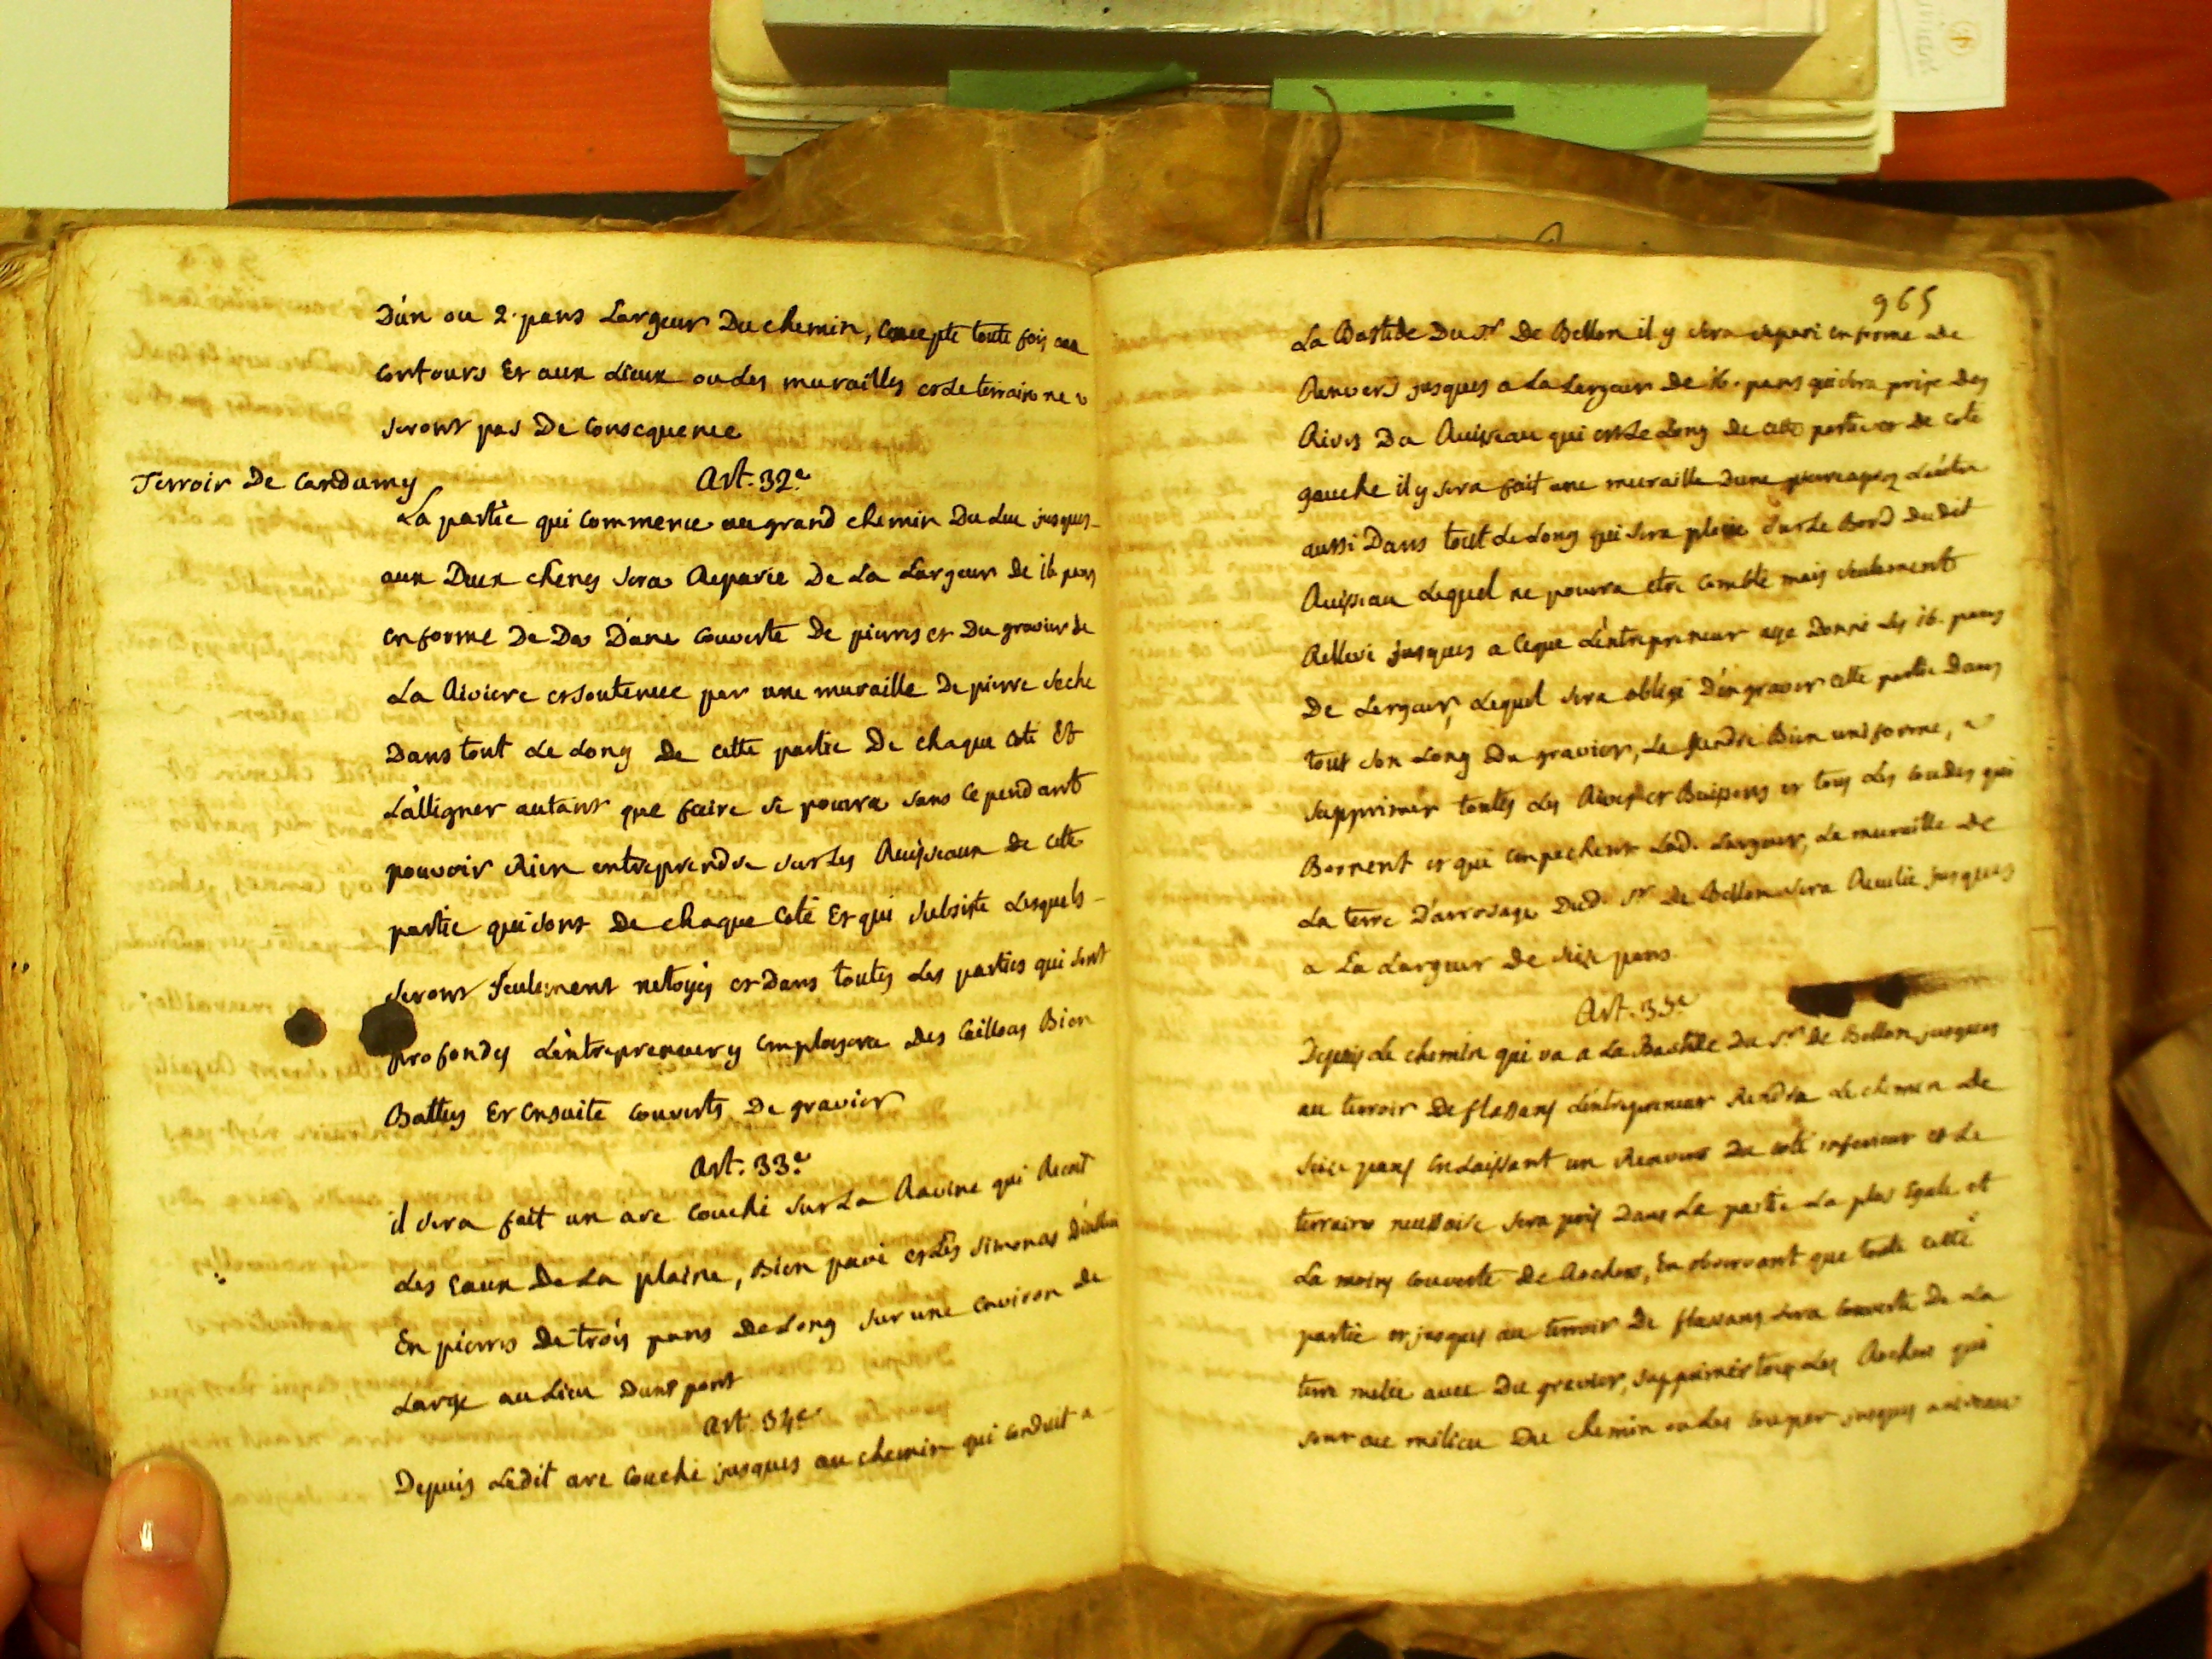 D'un ou 2. pans Largeur Du chemin, Excepte toute fois aux
contours Et aux Lieux ou Les murailles et Le terrain ne
seront pas De Consequence
Terroir De Candumy
Art. 32.e
La partie qui Commence au grand chemin Du Luc jusques
aux Deux chenes sera Reparée De La Largeur de 16 pans
en forme De Dos D'ane Couverte De pierres et Du gravier de
La Riviere et soutenue par une muraille De pierre seche
Dans tout Le Long De cette partie De chaque coté Et
L'alligner autant que faire se pourra sans Cependant
pouvoir Rien entreprendre sur Les Ruisseaux De cette
partie qui sont De chaque Coté Et qui subsiste Lesquels
seront seulement netoyés et Dans toutes Les parties qui sont
profondes L'entrepreneur y Employera Des Cailloux Bien
Battus Et Ensuite Couverts De gravier
Art. 33.e
il sera fait un arc Couché sur La Ravine qui Recoit
Les Eaux De La plaine, Bien pavé et Les
En pierres De trois pans De Long sur une Environ de
Large au Lieu Dunt pont
Art. 34.e
Depuis Ledit arc Couché jusques au chemin qui Conduit a
965
La Bastide Du Sr. De Bellon il y sera reparé en forme De
Renvers jusques a La Largeur De 16. pans qui sera prise Des
Rives Du Ruisseau qui est Le Long De cette partie et De Coté
gauche il y sera fait une muraille Dune
aussi Dans tout Le Long qui sera sur Le Bord Dudit
Ruisseau Lequel ne pourra etre Comblé mais seulement
Rellevé jusques a Ceque L'entrepreneur aye Donné Les 16. pans
De Largeur, Lequel sera obligé D'engraver cette partie Dans
tout son Long Du gravier, Le Rendre Bien uniforme, a
supprimer toutes Les Rives et Buissons et tous Les Coudes qui
Bornent et qui Empechent Lad. Largeur, La muraille De
La terre D'arrosage Dud. Sr. De Bellon sera Reculée jusques
a La Largeur De seize pans
Art. 35.e
Depuis Le chemin qui va a La Bastide Du Sr. De Bellon jusques
au terroir De flassans L'entrepreneur Rendra Le chemin De
seize pans En Laissant un Renvers Du coté inferieur et Le
terrain necessaire sera pris Dans La partie La plus Egale et
La moins Couverte De Rochers, En observant que toute cette
partie et jusques au terroir De flassans sera Couverte De La
terre melée avec Du gravier, supprimer tous Les Rochers qui
sont au milieu Du chemin ou Les Couper jusques au niveau